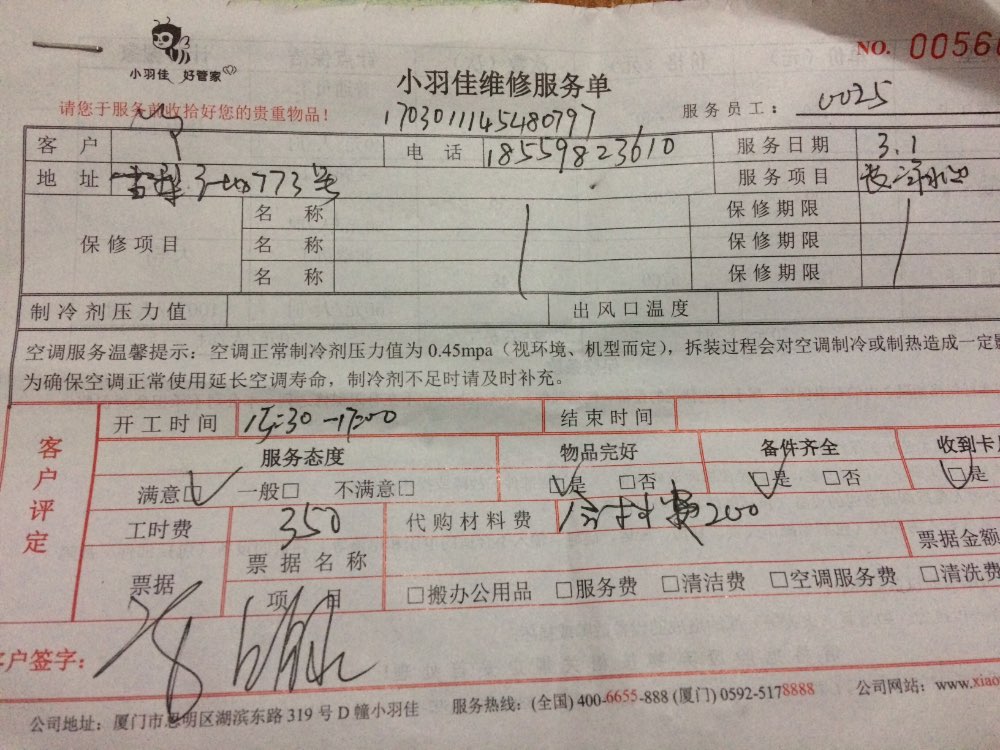 小羽佳 好管家
NO. 00566
小羽佳维修服务单
请您于服务前收拾好您的贵重物品!
1703011145480797
服务员工: 0025
客户 电话 18559823610 服务日期 3.1
地址 773号 服务项目
保修项目 名称 保修期限
名称 保修期限
名称 保修期限
制冷剂压力值 出风口温度
空调服务温馨提示: 空调正常制冷剂压力值为 0.45mpa (视环境、机型而定), 拆装过程会对空调制冷或制热造成一定
为确保空调正常使用延长空调寿命, 制冷剂不足时请及时补充。
客户评定
开工时间 15:30-17:00 结束时间
服务态度 物品完好 备件齐全 收到卡
满意□ 一般□ 不满意□ □是 □否 □是 □否 □是
工时费 350 代购材料费 含材料费200
票据 票据名称 票据金额
项目 □搬办公用品 □服务费 □清洁费 □空调服务费 □清洗费
客户签字:
公司地址: 厦门市思明区湖滨东路 319 号 D 幢小羽佳 服务热线: (全国) 400-6655-888 (厦门) 0592-5178888 公司网站: www.xiao